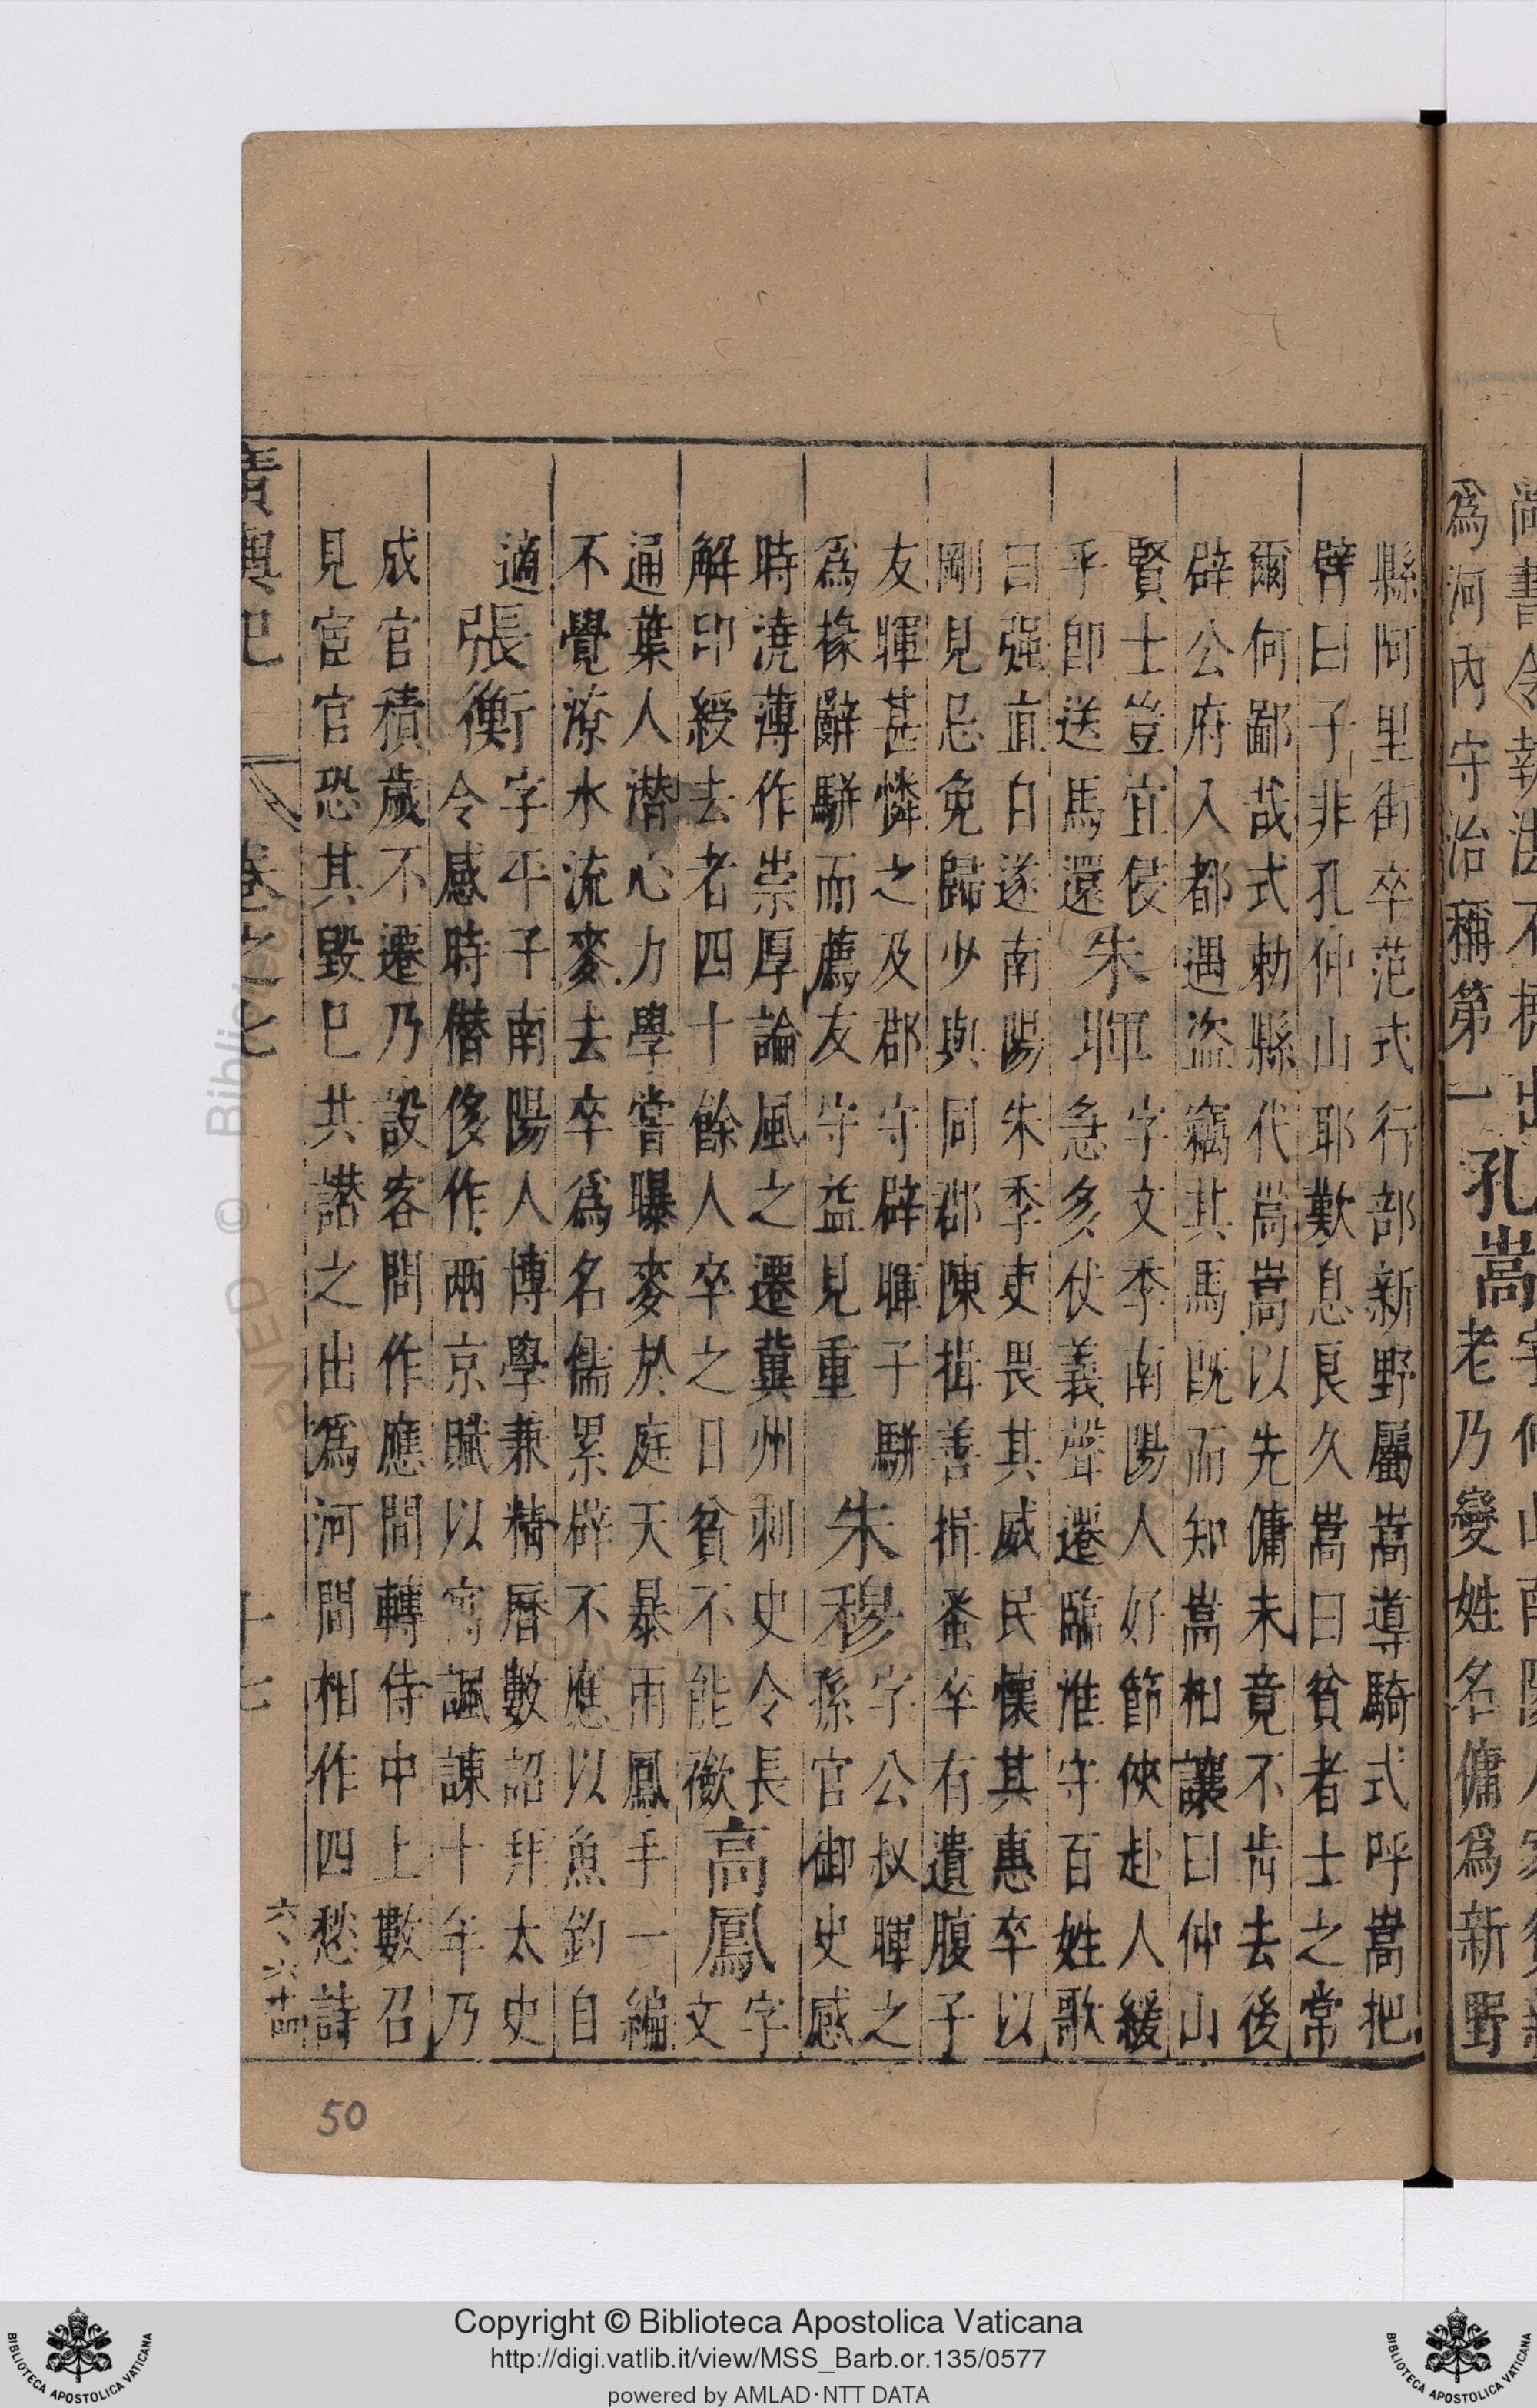 爲河內守治稱第一孔嵩老乃變姓名傭爲新野
縣阿里街卒范式行部新野屬嵩導騎式呼嵩把
臂曰子非孔仲山耶歎息良久嵩曰貧者士之常
爾何鄙哉式勅縣代嵩嵩以先傭未竟不肯去後
辟公府入都遇盜竊其馬旣而知嵩相讓曰仲山
賢士豈宜侵
乎卽送馬還
朱暉
字文季南陽人好節俠赴人緩
急多仗義聲遷臨淮守百姓歌
曰强直自遂南陽朱季吏畏其威民懷其惠卒以
剛見忌免歸少與同郡陳揖善揖蚤卒有遺腹子
友暉甚憐之及郡守辟暉子駢
爲掾辭駢而薦友守益見重
朱穆
字公叔暉之
孫官御史感
時澆薄作崇厚論風之遷冀州刺史令長
解印綬去者四十餘人卒之日貧不能斂
高鳳
字
文
通葉人潛心力學嘗曝麥於庭天暴雨鳳手一編
不覺潦水流麥去卒爲名儒累辟不應以魚釣自
適
張衡
字平子南陽人博學兼精曆數詔拜太史
令感時僭侈作兩京賦以寓諷諫十年乃
成官積歲不遷乃設客問作應問轉侍中上數召
見宦官恐其毀巳共譖之出爲河間相作四愁詩
廣輿記 卷之七 十七
50
Copyright © Biblioteca Apostolica Vaticana
http://digi.vatlib.it/view/MSS_Barb.or.135/0577
powered by AMLAD·NTT DATA
BIBLIOTECA APOSTOLICA VATICANA
BIBLIOTECA APOSTOLICA VATICANA